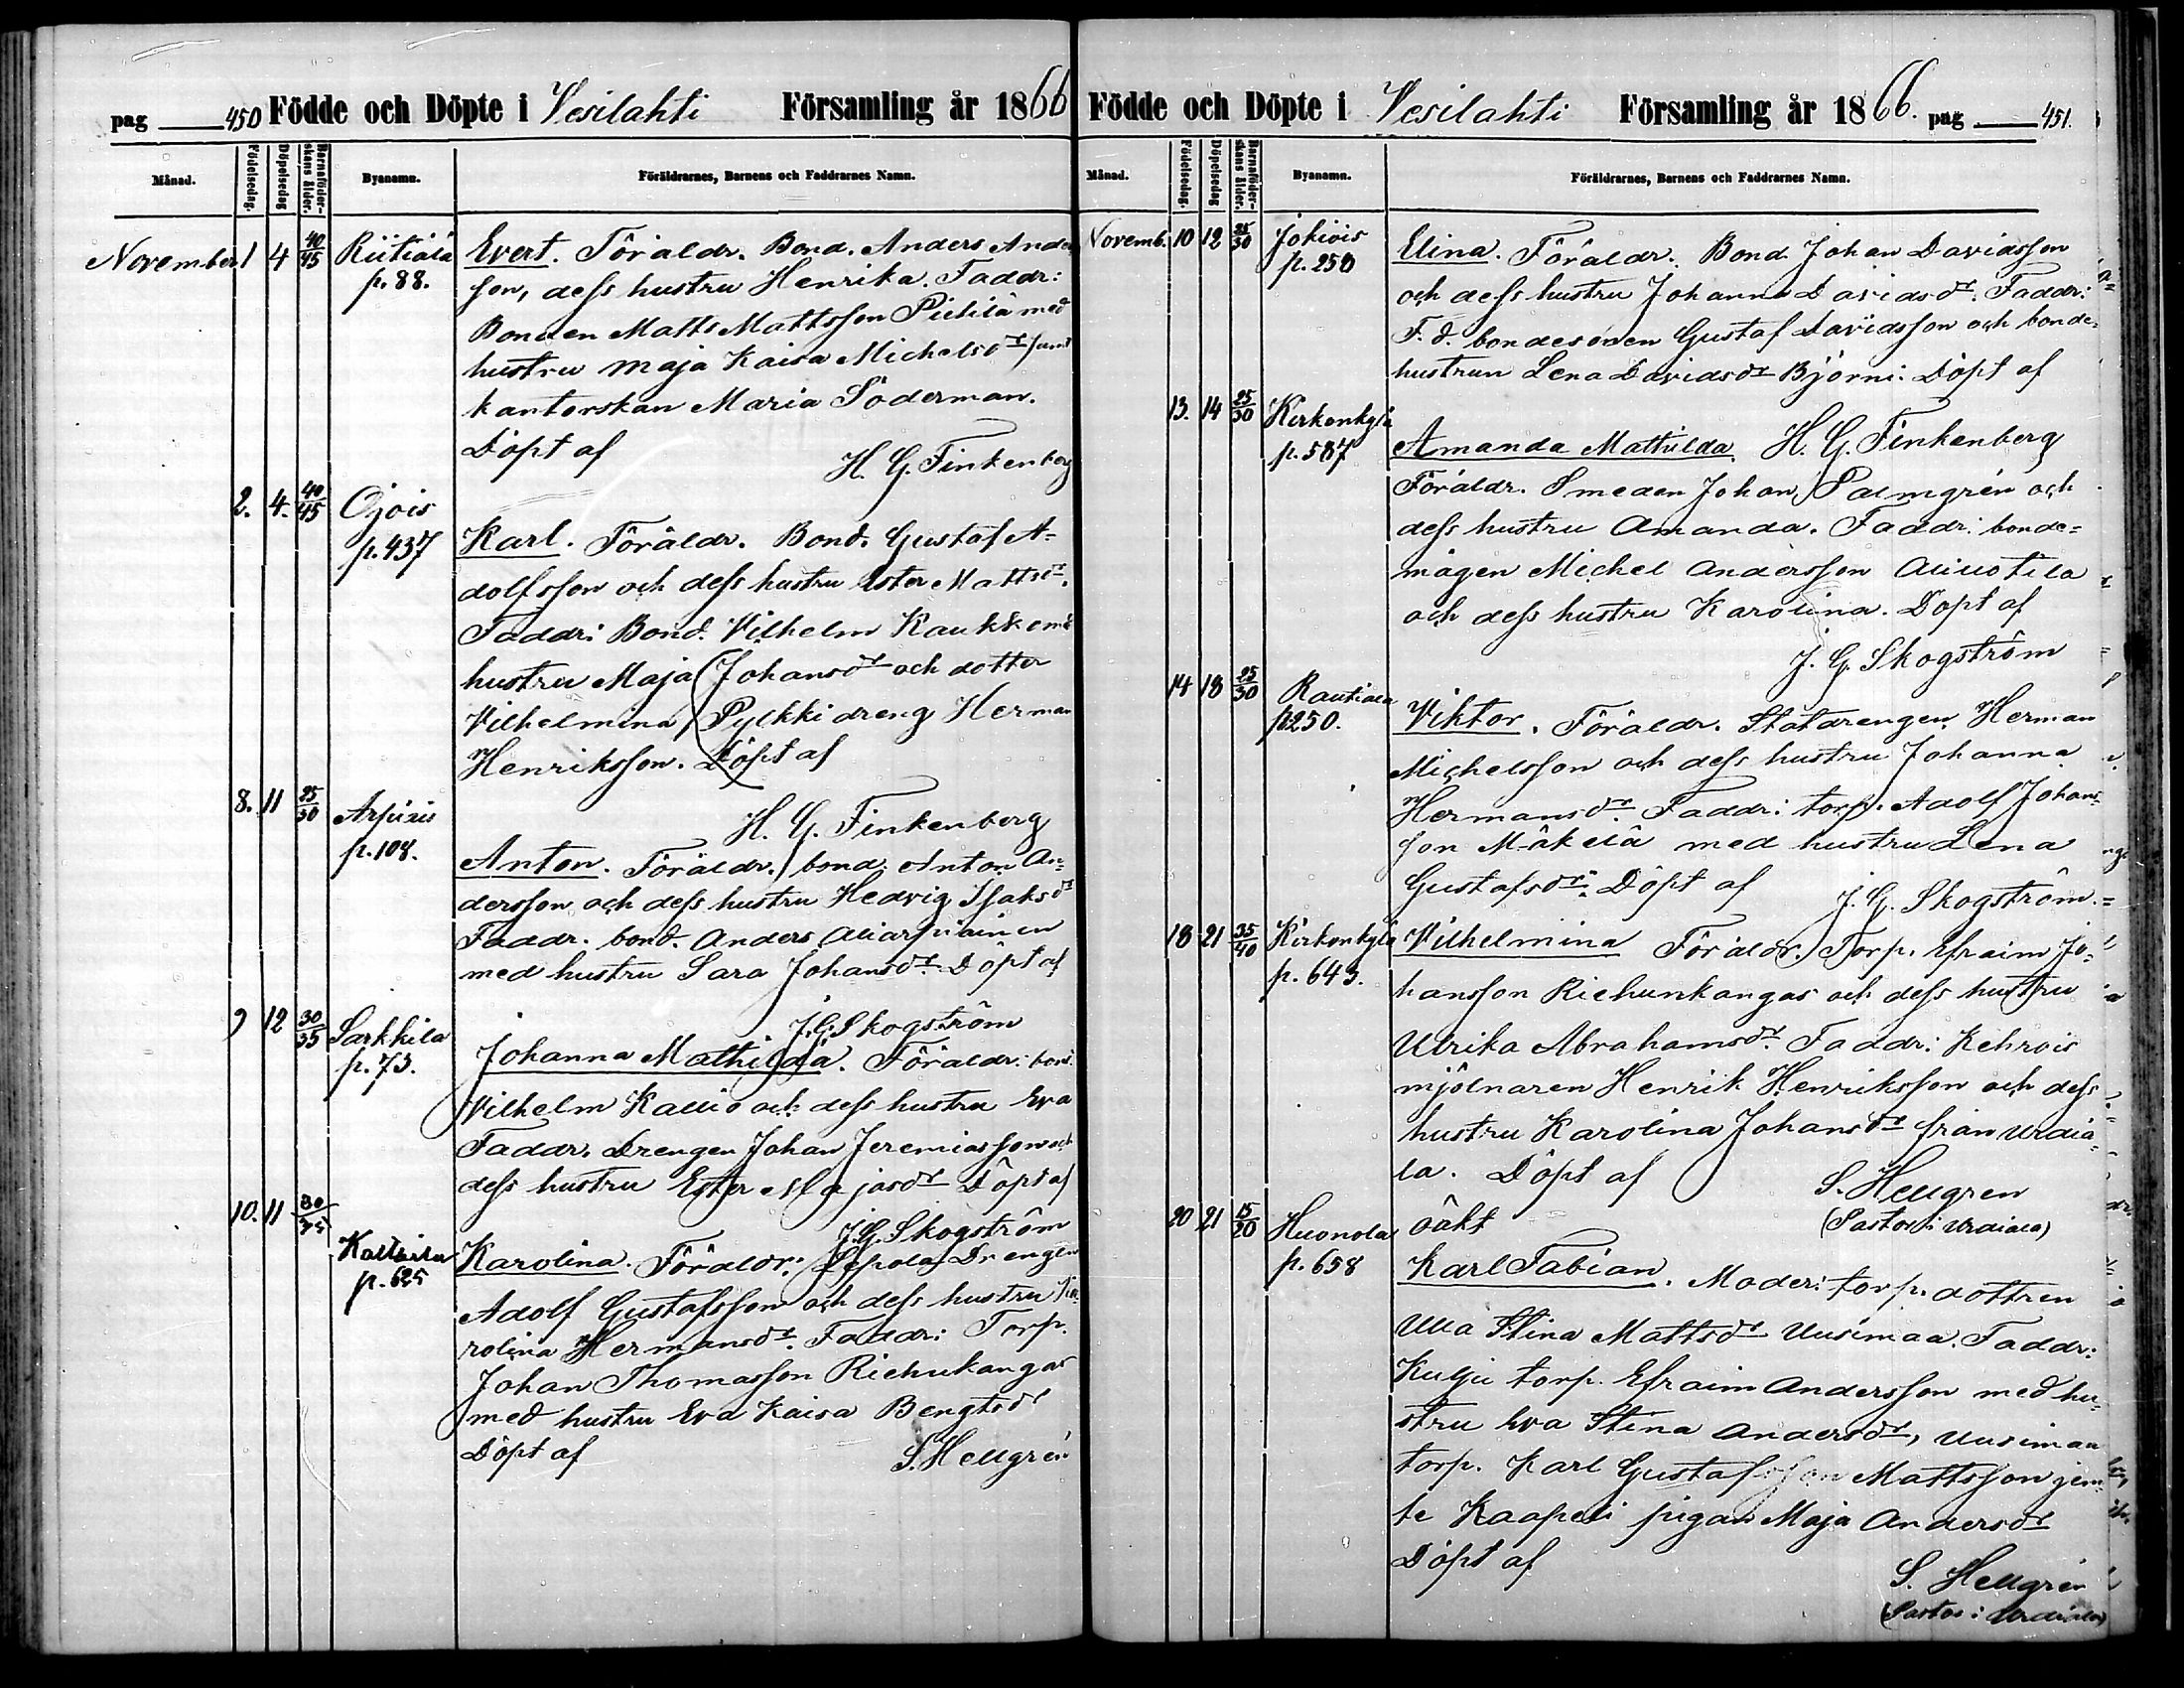 pag 450 Födde och Döpte i Vesilahti Församling år 1866
Månad. Födelsedag. Döpelsedag Barnaföderskans ålder. Byanamn. Föräldrarnes, Barnens och Faddrarnes Namn.
November 1 4 40/45 Riitiala p. 88.
Evert. Föräldr. Bond. Anders Anders
son, dess hustru Henrika. Faddr:
Bonden Matts Mattsson Pietilä med
hustru Maja Kaisa Michelsdr samt
kantorskan Maria Söderman.
Döpt af
H. G. Finkenberg
2. 4. 40/45 Ojois p. 437
Karl. Föräldr. Bond. Gustaf A-
dolfsson och dess hustru Ester Mattsdr.
Faddr: Bond. Vilhelm Kaukk
hustru Maja Johansdr och dotter
Vilhelmina, Pylkki dreng Herman
Henriksson. Döpt af
H. G. Finkenberg
8. 11 25/30 Arpiais p. 108.
Anton. Föräldr. bond. Anton An-
dersson och dess hustru Hedvig Isaksdr
Faddr. bond. Anders Aliarpiainen
med hustru Sara Johansdr. Döpt af
J. G. Skogström
9 12 30/35 Sarkkila p. 73.
Johanna Mathilda. Föräldr: bond.
Vilhelm Kallio och dess hustru Eva
Faddr. Drengen Johan Jeremiasson och
dess hustru Ester Majasdr Döpt af
J. G. Skogström
10. 11 30/35 Kaltsila p. 625
Karolina. Föräldr: Lepola Drengen
Adolf Gustafsson och dess hustru Ka-
rolina Hermansdr. Faddr: Torp.
Johan Thomasson Riehunkangas
med hustru Eva Kaisa Bengtsdr
Döpt af
S. Hellgrén
Födde och Döpte i Vesilahti Församling år 1866. pag 451.
Månad. Födelsedag. Döpelsedag Barnaföderskans ålder. Byanamn. Föräldrarnes, Barnens och Faddrarnes Namn.
Novemb. 10 12 25/30 Jokiois p. 250
Elina. Föräldr. Bond. Johan Davidsson
och dess hustru Johanna Davidsdr. Faddr:
F. d. bondesonen Gustaf Davidsson och bonde-
hustrun Lena Davidsdr Björni. Döpt af
H. G. Finkenberg
13. 14 25/30 Kirkonkylä p. 587
Amanda Mathilda.
Föräldr. Smeden Johan Palmgrén och
dess hustru Amanda. Faddr: bonde-
mågen Michel Andersson Alimotila
och dess hustru Karolina. Döpt af
J. G. Skogström
14 18 25/30 Rautiala p. 250.
Viktor. Föräldr. Statdrengen Herman
Michelsson och dess hustru Johanna
Hermansdr. Faddr: torp. Adolf Johans-
son Mäkelä med hustru Lena
Gustafsdr. Döpt af
J. G. Skogström.
18 21 35/40 Kirkonkylä p. 643.
Vilhelmina Föräldr. Torp. Efraim Jo-
hansson Riehunkangas och dess hustru
Ulrika Abrahamsdr. Faddr: Kehrois
mjölnaren Henrik Henriksson och dess
hustru Karolina Johansdr från Urdia-
la. Döpt af
S. Hellgren
(Pastor i Urdiala)
20 21 15/20 Huonola p. 658
oäkt
Karl Fabian. Moder: torp. dottren
Ulla Stina Mattsdr Uusimaa. Faddr:
Kulju torp. Efraim Andersson med hu-
stru Eva Stina Andersdr, Uusimaa
torp. Karl Gustafsson Mattsson jem-
te Kaapeli pigan Maja Andersdr
Döpt af
S. Hellgrén
(Pastor i Urdiala)